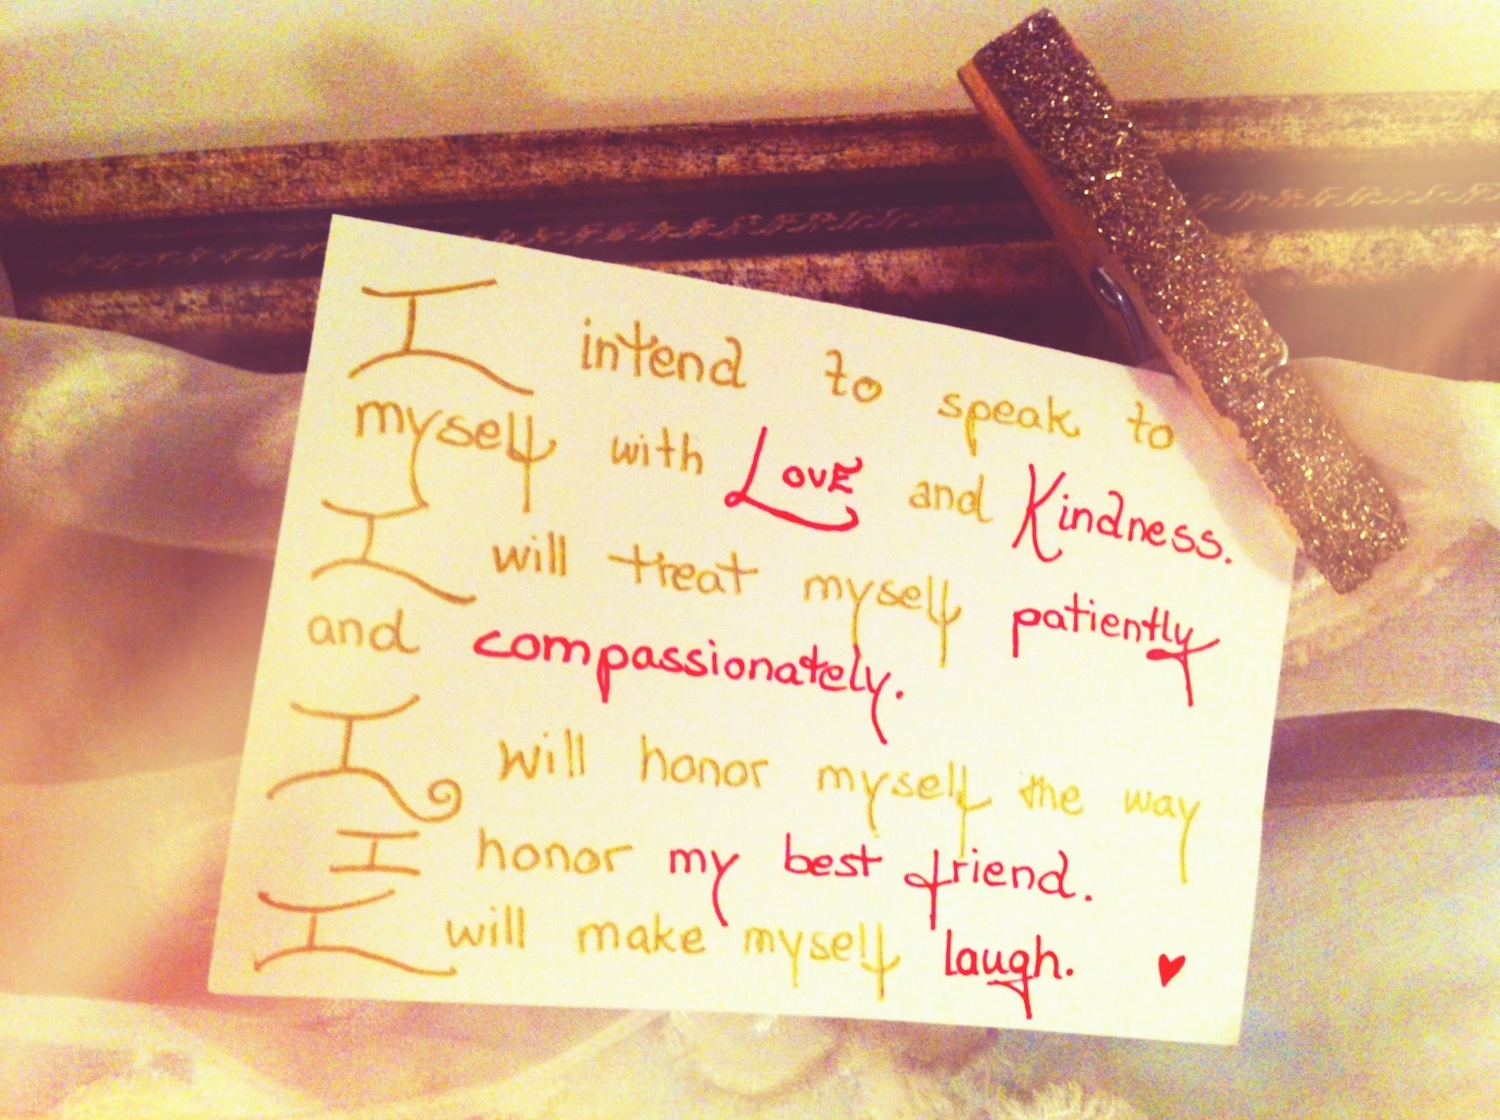 I intend to speak to
myself with Love and Kindness.
I will treat myself patiently
and compassionately.
I will honor myself the way
I honor my best friend.
I will make myself laugh. ♥